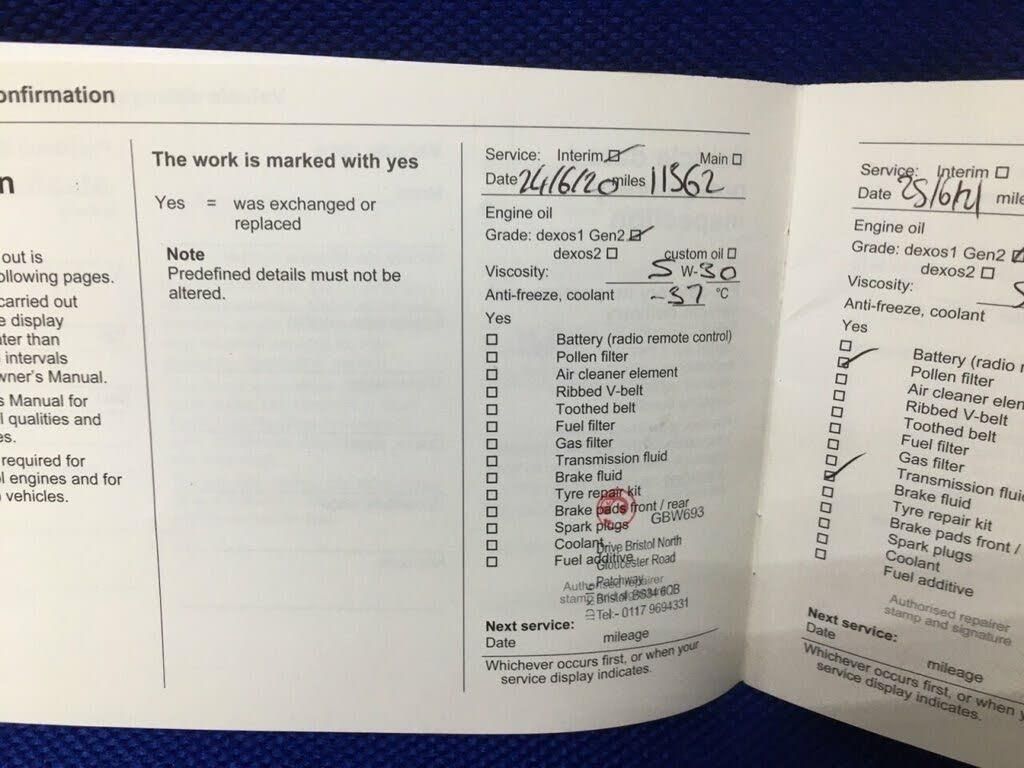 onfirmation
n
out is
ollowing pages.
carried out
e display
ater than
intervals
wner's Manual.
s Manual for
l qualities and
es.
required for
l engines and for
vehicles.
The work is marked with yes
Yes = was exchanged or
replaced
Note
Predefined details must not be
altered.
Service: Interim Main
Date 24/6/20 miles 11562
Engine oil
Grade: dexos1 Gen2
dexos2 custom oil
Viscosity: 5 W-30
Anti-freeze, coolant -37 °C
Yes
Battery (radio remote control)
Pollen filter
Air cleaner element
Ribbed V-belt
Toothed belt
Fuel filter
Gas filter
Transmission fluid
Brake fluid
Tyre repair kit
Brake pads front / rear
Spark plugs GBW693
Coolant Drive Bristol North
Fuel additive Gloucester Road
Patchway
Authorised repairer
stamp Bristol. BS34 6QB
Tel:- 0117 9694331
Next service:
Date mileage
Whichever occurs first, or when your
service display indicates.
Service: Interim
Date 25/6/21 mile
Engine oil
Grade: dexos1 Gen2
dexos2
Viscosity: 5
Anti-freeze, coolant
Yes
Battery (radio r
Pollen filter
Air cleaner elem
Ribbed V-belt
Toothed belt
Fuel filter
Gas filter
Transmission fluid
Brake fluid
Tyre repair kit
Brake pads front /
Spark plugs
Coolant
Fuel additive
Authorised repairer
stamp and signature
Next service:
Date mileage
Whichever occurs first, or when y
service display indicates.